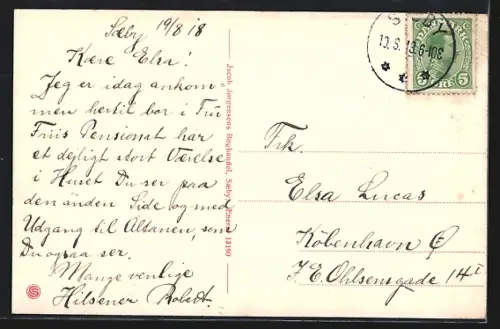 Sæby 19/8 18
Kære Elsa!
Jeg er idag ankom-
men hertil bor i Frü
Friis Pensionat har
et dejligt stort Værelse
i Huset Du ser paa
den anden Side og med
Udgang til Altanen, som
Du ogsaa ser.
Mange venlige
Hilsener
Jacob Jørgensens Boghandel, Sæby. Eneret 13190
SÆBY
DANMARK
5 ØRE 5
Frk.
Elsa Lucas
København Ø
J. E. Ohlsensgade 14 I